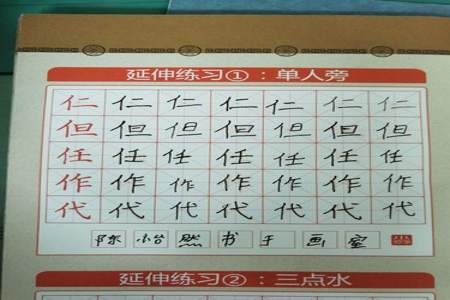 延伸练习①：单人旁
仁 仁 仁 仁 仁 仁 仁
但 但 但 但 但 但 但
任 任 任 任 任 任 任
作 作 作 作 作 作 作
代 代 代 代 代 代 代
陈 然 书 手 画 室
延伸练习②：三点水